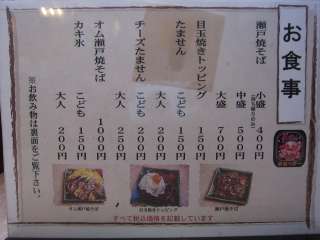 お食事
瀬戸焼そば
小盛 400円
中盛 500円
大盛 700円
目玉焼きトッピング 150円
たません
こども 150円
大人 200円
チーズたません
こども 200円
大人 250円
オム瀬戸焼そば 1000円
カキ氷
こども 150円
大人 200円
※お飲み物は裏面をご覧下さい。
オム瀬戸焼そば
目玉焼きトッピング
瀬戸焼そば
すべて税込価格を記載しています